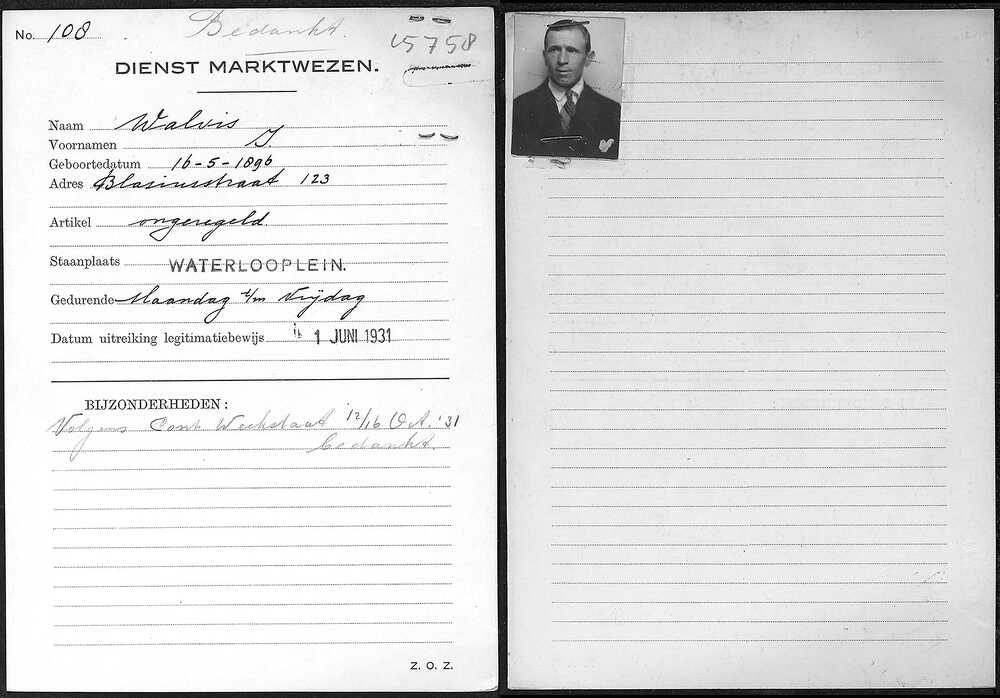 No. 108
Bedankt.
15758
DIENST MARKTWEZEN.
Naam Walvis
Voornamen J.
Geboortedatum 16-5-1896
Adres Blasiusstraat 123
Artikel ongeregeld.
Staanplaats WATERLOOPLEIN.
Gedurende Maandag t/m Vrijdag
Datum uitreiking legitimatiebewijs 1 JUNI 1931
BIJZONDERHEDEN:
Volgens Cont. Weekstaat 12/16 Oct. '31
bedankt.
Z. O. Z.